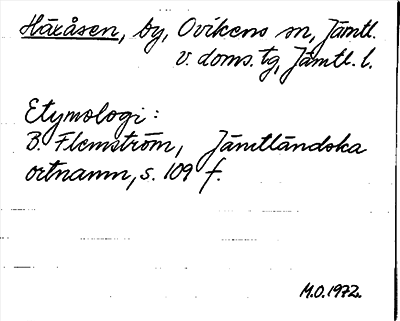 Häxåsen, by, Ovikens sn, Jämtl.
v. doms. tg, Jämtl. l.
Etymologi:
B. Flemström, Jämtländska
ortnamn, s. 109 f.
M.O. 1972.